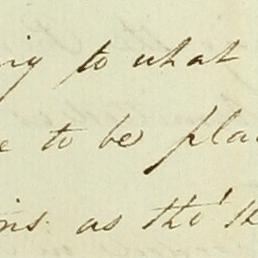 ing to what
e to be pla
ns as tho' th